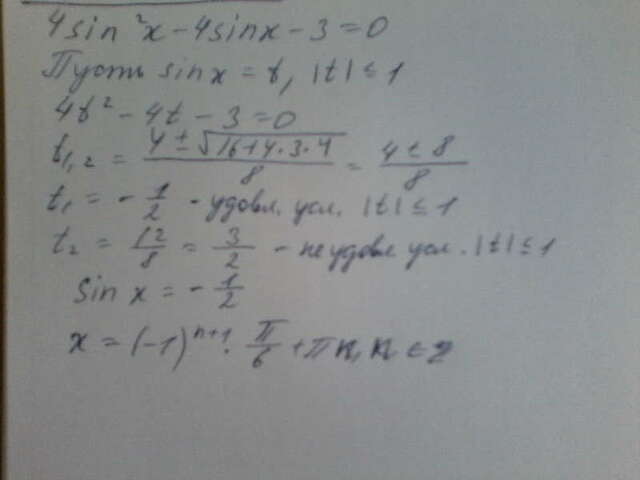 4sin²x - 4sinx - 3 = 0
Пусть sinx = t, |t| ≤ 1
4t² - 4t - 3 = 0
t₁,₂ = (4 ± √(16+4·3·4))/8 = (4 ± 8)/8
t₁ = - 1/2 - удовл. усл. |t| ≤ 1
t₂ = 12/8 = 3/2 - не удовл усл. |t| ≤ 1
sin x = - 1/2
x = (-1)ⁿ⁺¹ · π/6 + πn, n ∈ z